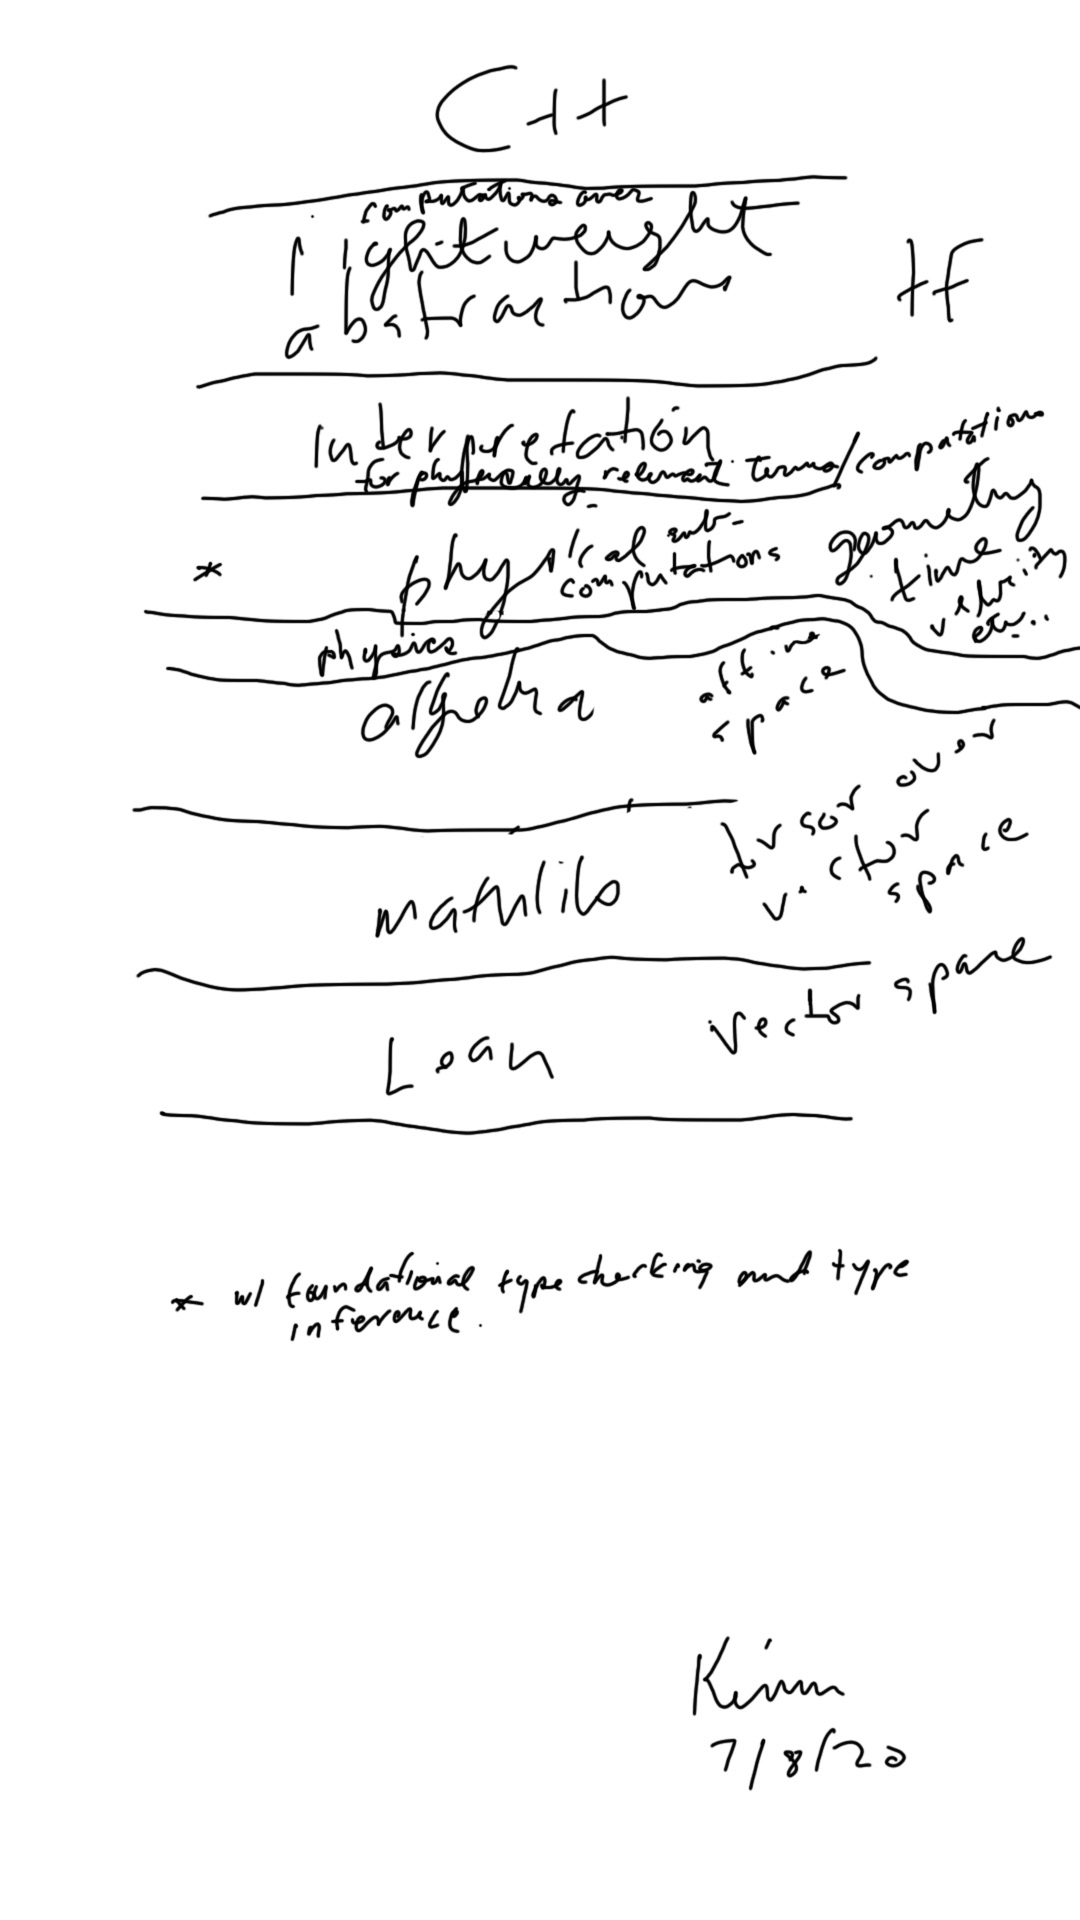 C++
computations over
lightweight
abstractions
tf
Interpretation
for physically relevant terms/computations
* physical sub-
computations
geometry
time
velocity
etc..
physics
algebra
affine
space
torsor over
vector
space
mathlib
vector space
Lean
* w/ foundational typechecking and type
inference.
Kevin
7/8/20